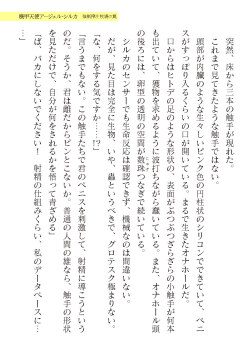 機甲天使アージェル・シルカ
突然、床から三本の触手が現れた。
これまで見てきたような触手ではない。
頭部が内臓のような生々しいピンク色の円柱状のシリコンでできていて、ペニ
スがすっぽり入るくらいの口が開いている。まるで生きたオナホールだ。
口からはヒトデの足のような形状の、表面がぶつぶつざらざらの小触手が何本
も出ていて、獲物を求めるように波打ちながら蠢いている。また、オナホール頭
の後ろには、卵型の透明の容器が数珠つなぎで続いている。
シルカのセンサーでも生命反応は確認できず、機械なのは間違いない。
だが、見た目は完全に生物、いや、蟲というべきで、グロテスク極まりない。
「な、何をする気ですか……!?」
「言うまでもない。この触手たちで君のペニスを刺激して、射精に導こうという
のだ。そうか、君は 普通の人間の雄なら、触手の形状
を見ただけで、自分が何をされるかを悟って青ざめる」
「ば、バカにしないでください! 射精の仕組みくらい、私のデータベースに…
…」